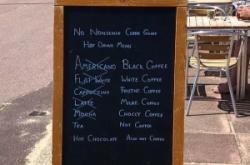 No Nonsense Coffee Guide
Hot Drink Menu
Americano Black Coffee
Flat White White Coffee
Cappuccino Frothy Coffee
Latte Milky Coffee
Mocha Chocey Coffee
Tea Not Coffee
Hot Chocolate Also not Coffee